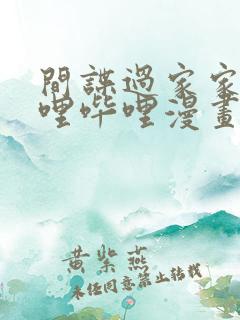 間諜過家家
哩哔哩漫畫
黄紫燕
未经同意禁止转载